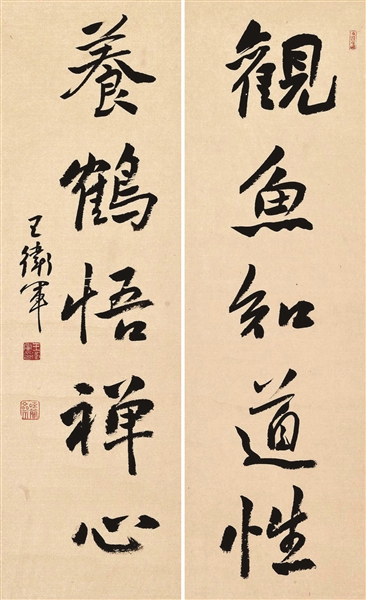 觀魚知道性
養鶴悟禅心
王衛軍